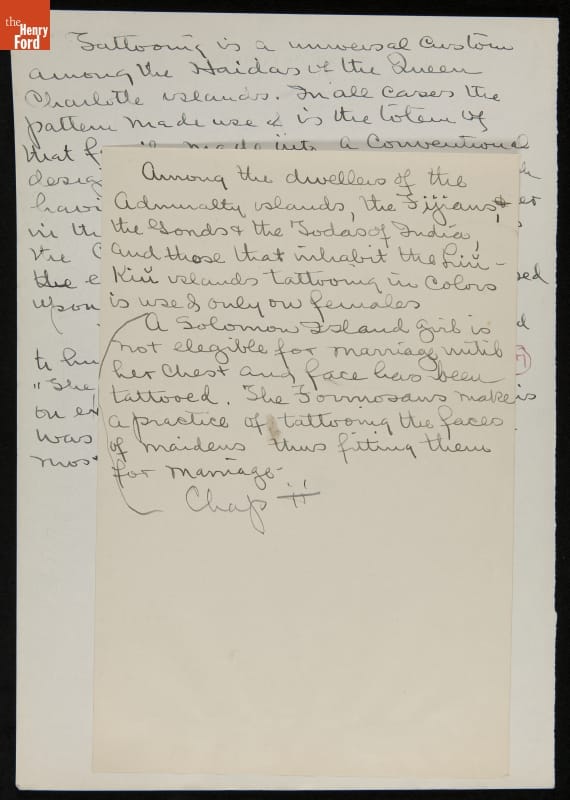 the
Henry
Ford
Tattooing is a universal custom
among the Haidas of the Queen
Charlotte islands. In all cases the
pattern made use of is the totem of
that made into a conventional
desig
havi
in th
the
the e
upon
to hu
"She
on ex
was
mos
Among the dwellers of the
Admiralty islands, the Fijians, &
the Gonds & the Todas of India,
and those that inhabit the Liu-
Kiu islands tattooing in colors
is used only on females
A Solomon Island girl is
not elegible for marriage until
her chest and face has been
tattooed. The Formosans make
a practice of tattooing the faces
of maidens thus fitting them
for marriage-
Chap ii